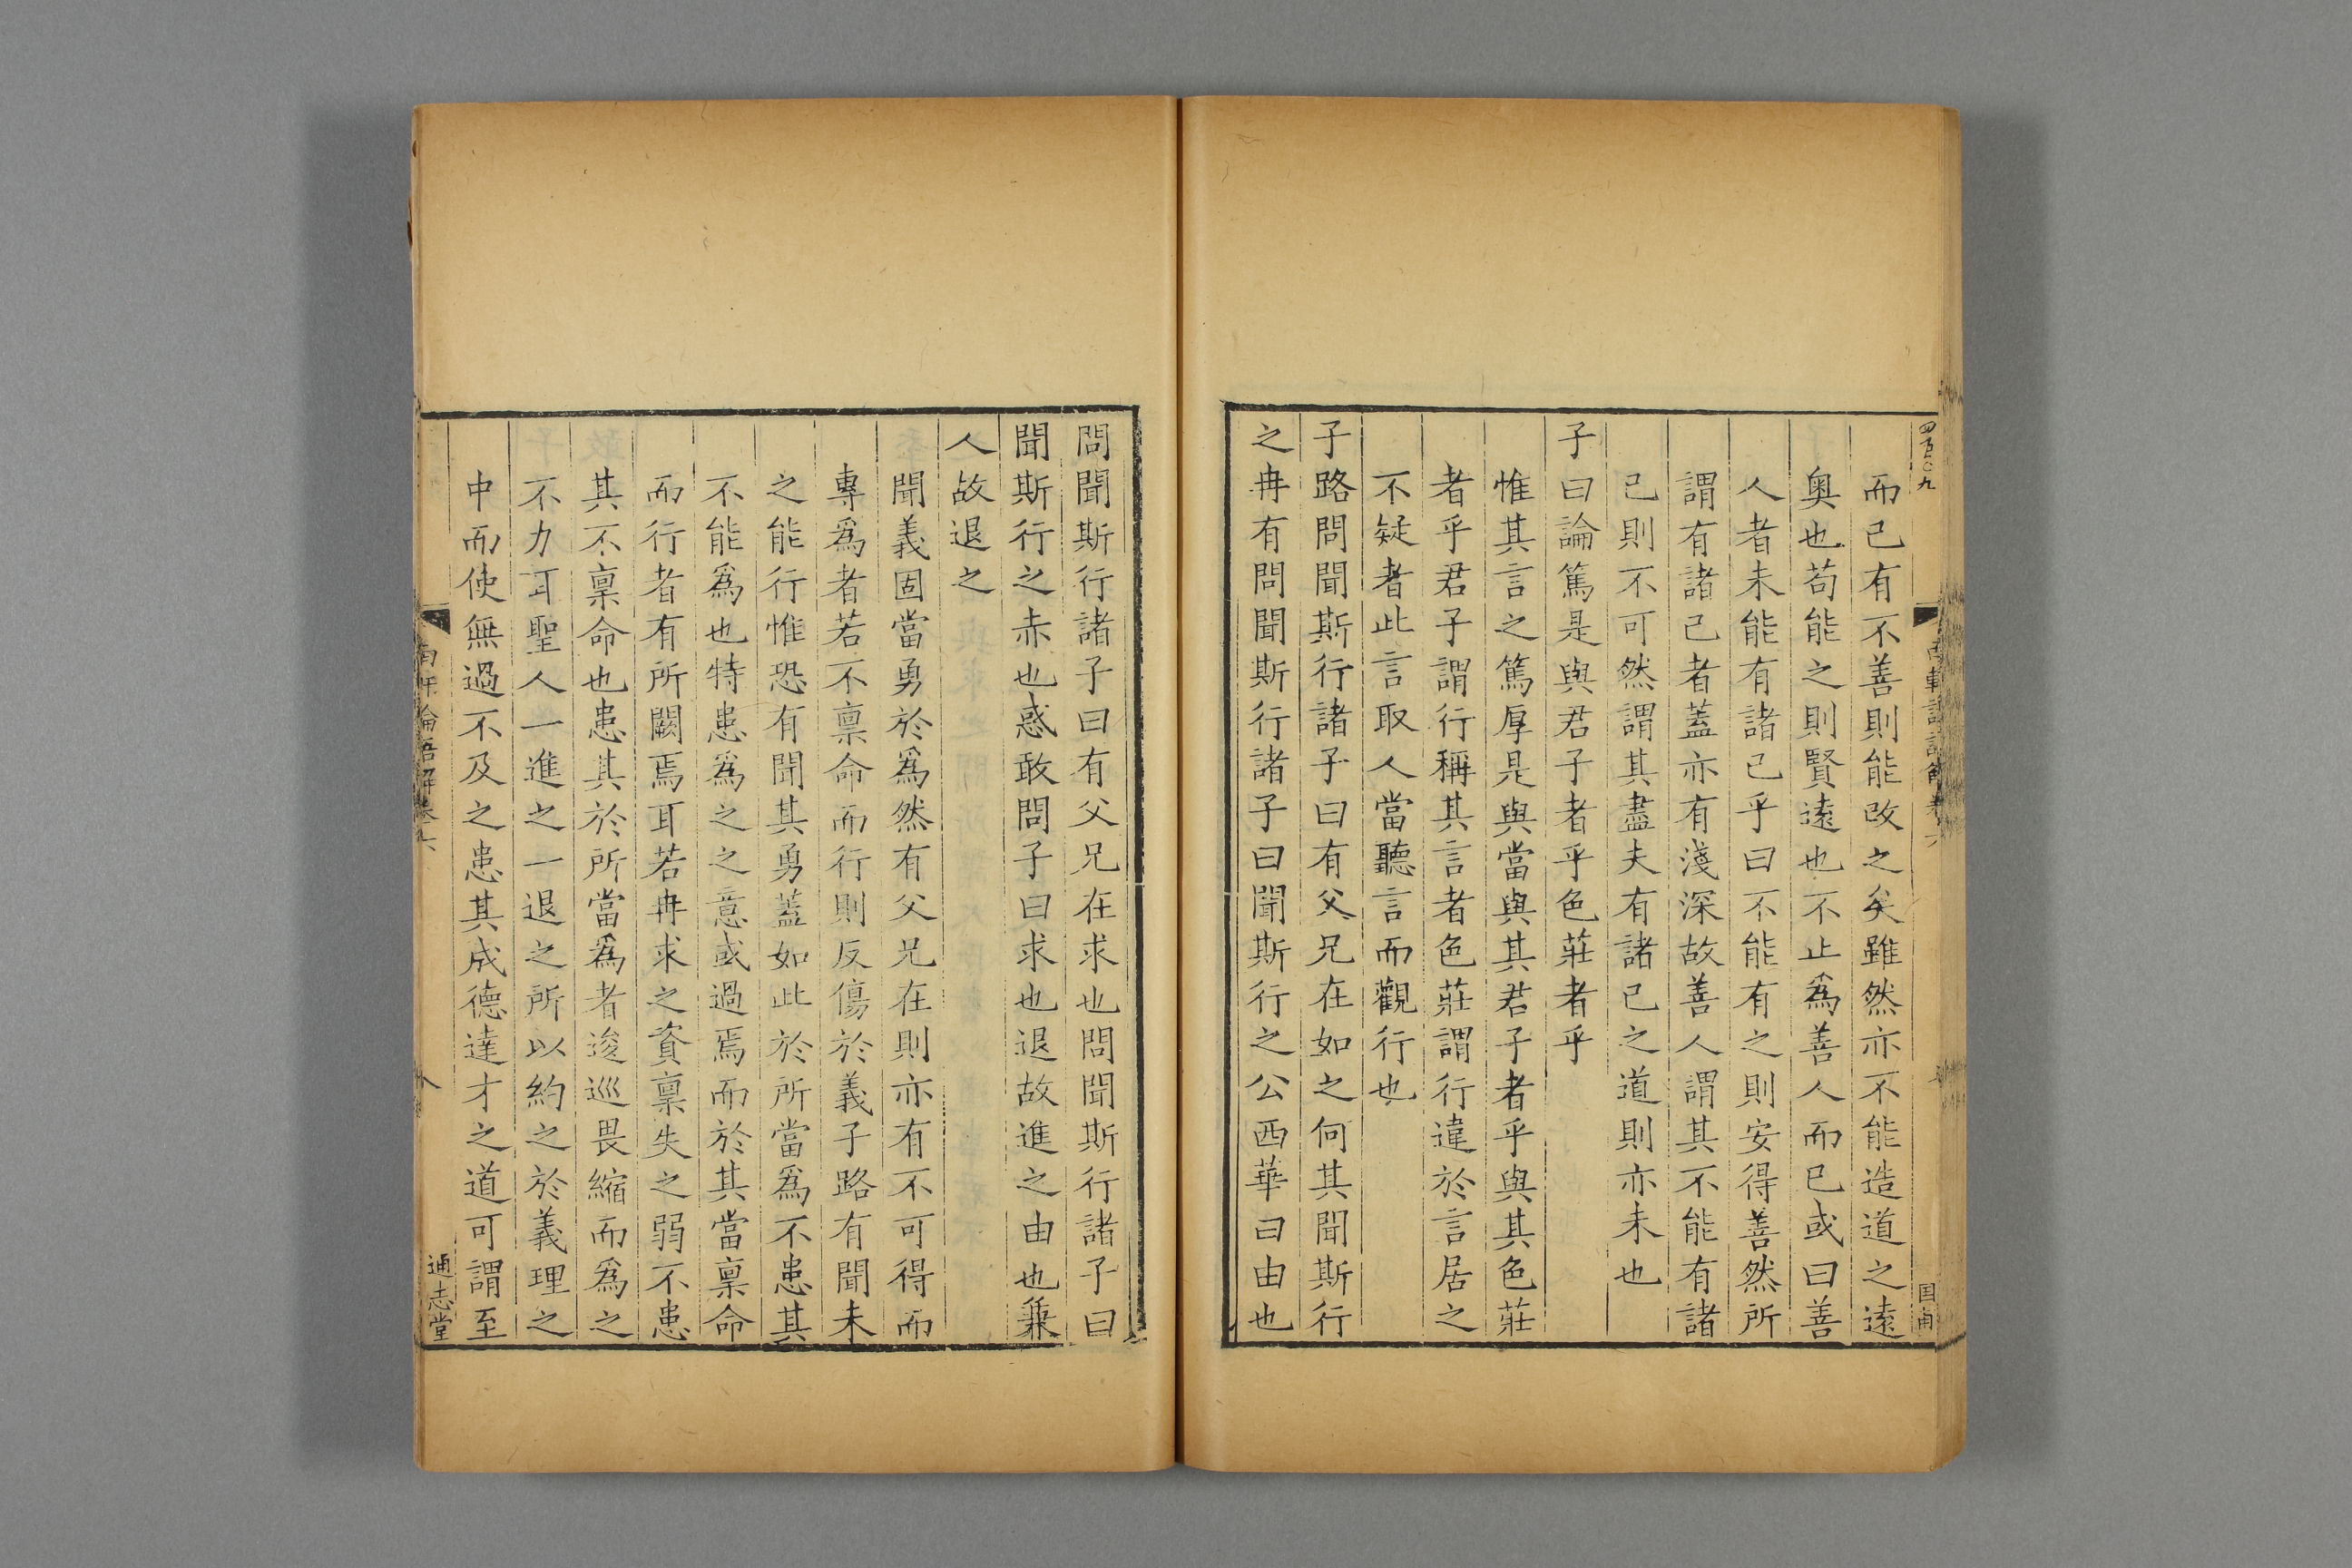 四百〇九
國甫
而已有不善則能改之矣雖然亦不能造道之遠
奧也苟能之則賢遠也不止爲善人而已或曰善
人者未能有諸己乎曰不能有之則安得善然所
謂有諸己者蓋亦有淺深故善人謂其不能有諸
已則不可然謂其盡夫有諸已之道則亦未也
子曰論篤是與君子者乎色莊者乎
惟其言之篤厚是與當與其君子者乎與其色莊
者乎君子謂行稱其言者色莊謂行違於言居之
不疑者此言取人當聽言而觀行也
子路問聞斯行諸子曰有父兄在如之何其聞斯行
之冉有問聞斯行諸子曰聞斯行之公西華曰由也
問聞斯行諸子曰有父兄在求也問聞斯行諸子曰
聞斯行之赤也惑敢問子曰求也退故進之由也兼
人故退之
聞義固當勇於爲然有父兄在則亦有不可得而
專爲者若不稟命而行則反傷於義子路有聞未
之能行惟恐有聞其勇蓋如此於所當爲不患其
不能爲也特患爲之之意或過焉而於其當稟命
而行者有所闕焉耳若冉求之資稟失之弱不患
其不稟命也患其於所當爲者逡巡畏縮而爲之
不力耳聖人一進之一退之所以約之於義理之
中而使無過不及之患其成德達才之道可謂至
南軒論語解卷六
八
通志堂